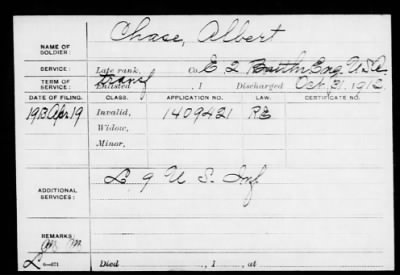 NAME OF SOLDIER: Chase, Albert
SERVICE: Late rank, Co. E 2 Battln Eng. U.S.A.
TERM OF SERVICE: transf Enlisted , 1 Discharged Oct. 31, 1912
DATE OF FILING. CLASS. APPLICATION NO. LAW. CERTIFICATE NO.
1913 Apr 19 Invalid, 1409421
Widow,
Minor,
ADDITIONAL SERVICES: L. 9 U. S. Inf
REMARKS:
6—421 Died , 1 , at